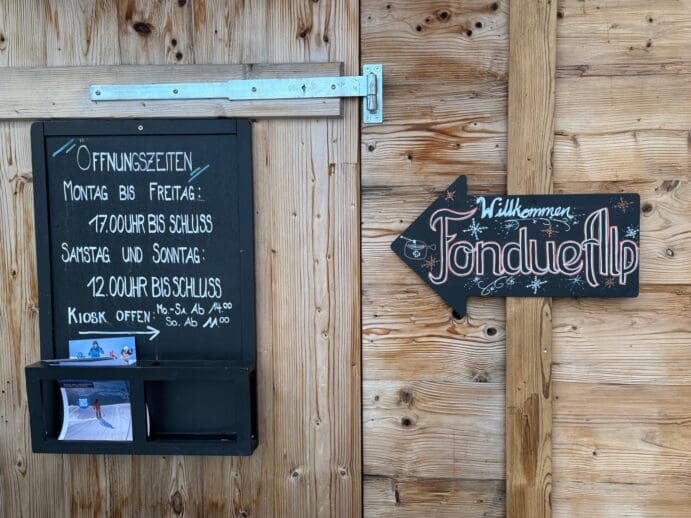 ÖFFNUNGSZEITEN
MONTAG BIS FREITAG:
17.00UHR BIS SCHLUSS
SAMSTAG UND SONNTAG:
12.00UHR BIS SCHLUSS
KIOSK OFFEN: Mo.-Sa. Ab 14.00
So. Ab 11.00
Willkommen
FondueAlp